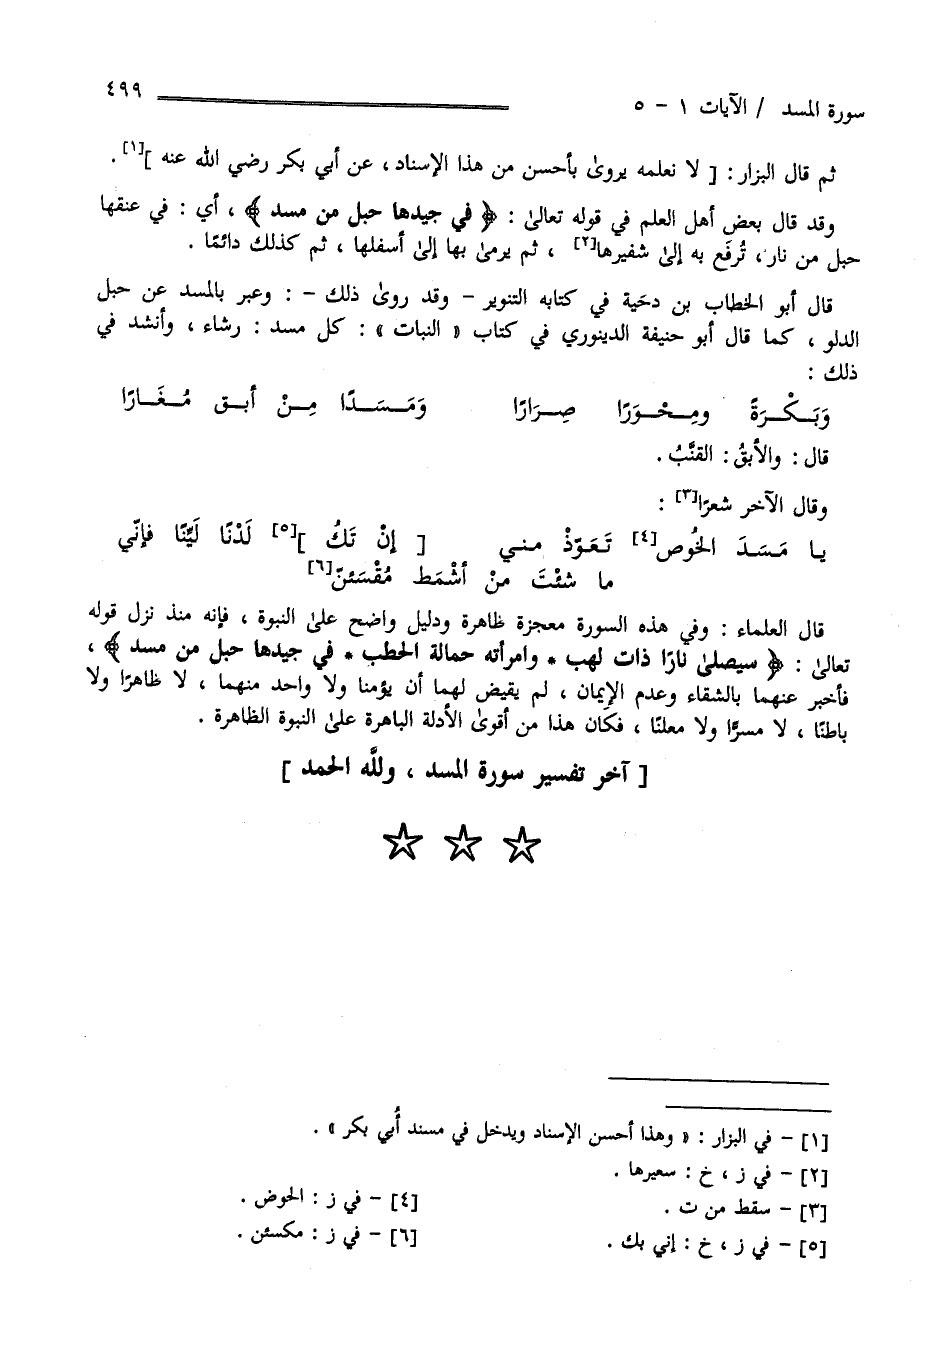 سورة المسد / الآيات ١ - ٥ ٤٩٩
ثم قال البزار : [ لا نعلمه يروىٰ بأحسن من هذا الإسناد ، عن أبي بكر رضي الله عنه ][١] .
وقد قال بعض أهل العلم في قوله تعالىٰ : ﴿ في جيدها حبل من مسد ﴾ ، أي : في عنقها
حبل من نار ، تُرفَع به إلىٰ شفيرها[٢] ، ثم يرمىٰ بها إلىٰ أسفلها ، ثم كذلك دائمًا .
قال أبو الخطاب بن دحَية في كتابه التنوير - وقد روىٰ ذلك - : وعبر بالمسد عن حبل
الدلو ، كما قال أبو حنيفة الدينوري في كتاب « النبات » : كل مسد : رشاء ، وأنشد في
ذلك :
وَبَـكْـرَةً ومِـحْـوَرًا صِـرَارًا وَمَـسَـدًا مِـنْ أبـق مُـغَـارًا
قال : والأبقُ : القنَّبُ .
وقال الآخر شعرًا[٣] :
يـا مَـسَـدَ الخُوص[٤] تَـعَـوّذْ مـنـي [ إنْ تَكُ ][٥] لَدْنًا لَيِّنًا فإنّي
ما شئْتَ منْ أشْمَط مُقْسَئنّ[٦]
قال العلماء : وفي هذه السورة معجزة ظاهرة ودليل واضح علىٰ النبوة ، فإنه منذ نزل قوله
تعالىٰ : ﴿ سيصلىٰ نارًا ذات لهب * وامرأته حمالة الحطب * في جيدها حبل من مسد ﴾ ،
فأخبر عنهما بالشقاء وعدم الإيمان ، لم يقيض لهما أن يؤمنا ولا واحد منهما ، لا ظاهرًا ولا
باطنًا ، لا مسرًّا ولا معلنًا ، فكان هذا من أقوىٰ الأدلة الباهرة علىٰ النبوة الظاهرة .
[ آخر تفسير سورة المسد ، وللَّه الحمد ]
[١] - في البزار : « وهذا أحسن الإسناد ويدخل في مسند أُبي بكر » .
[٢] - في ز ، خ : سعيرها .
[٣] - سقط من ت . [٤] - في ز : الحوض .
[٥] - في ز ، خ : إني بك . [٦] - في ز : مكسئن .